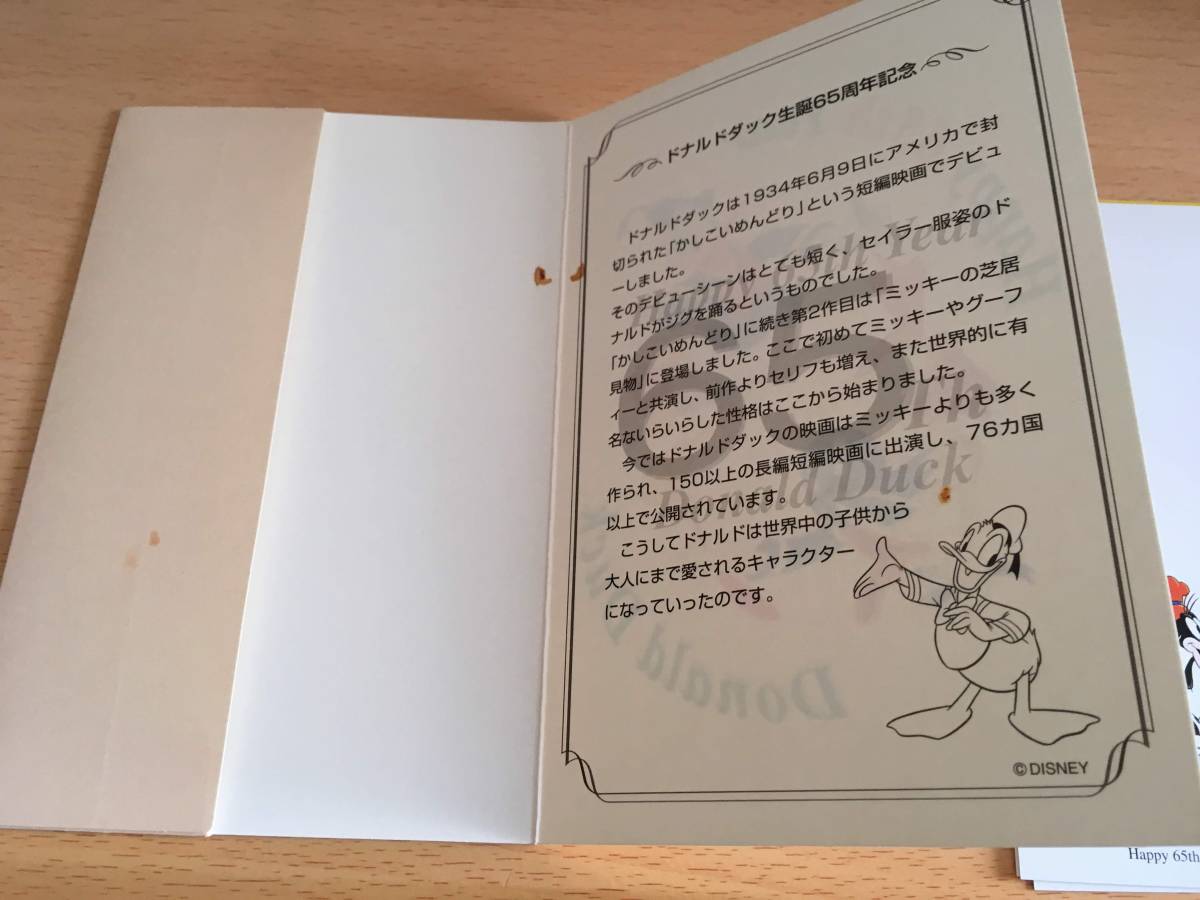 ドナルドダック生誕65周年記念
ドナルドダックは1934年6月9日にアメリカで封
切られた「かしこいめんどり」という短編映画でデビュ
ーしました。
そのデビューシーンはとても短く、セイラー服姿のド
ナルドがジグを踊るというものでした。
「かしこいめんどり」に続き第2作目は「ミッキーの芝居
見物」に登場しました。ここで初めてミッキーやグーフ
ィーと共演し、前作よりセリフも増え、また世界的に有
名ないらいらした性格はここから始まりました。
今ではドナルドダックの映画はミッキーよりも多く
作られ、150以上の長編短編映画に出演し、76カ国
以上で公開されています。
こうしてドナルドは世界中の子供から
大人にまで愛されるキャラクター
になっていったのです。
©DISNEY
Happy 65th Year
65Th
Donald Duck
Donald
Happy 65th